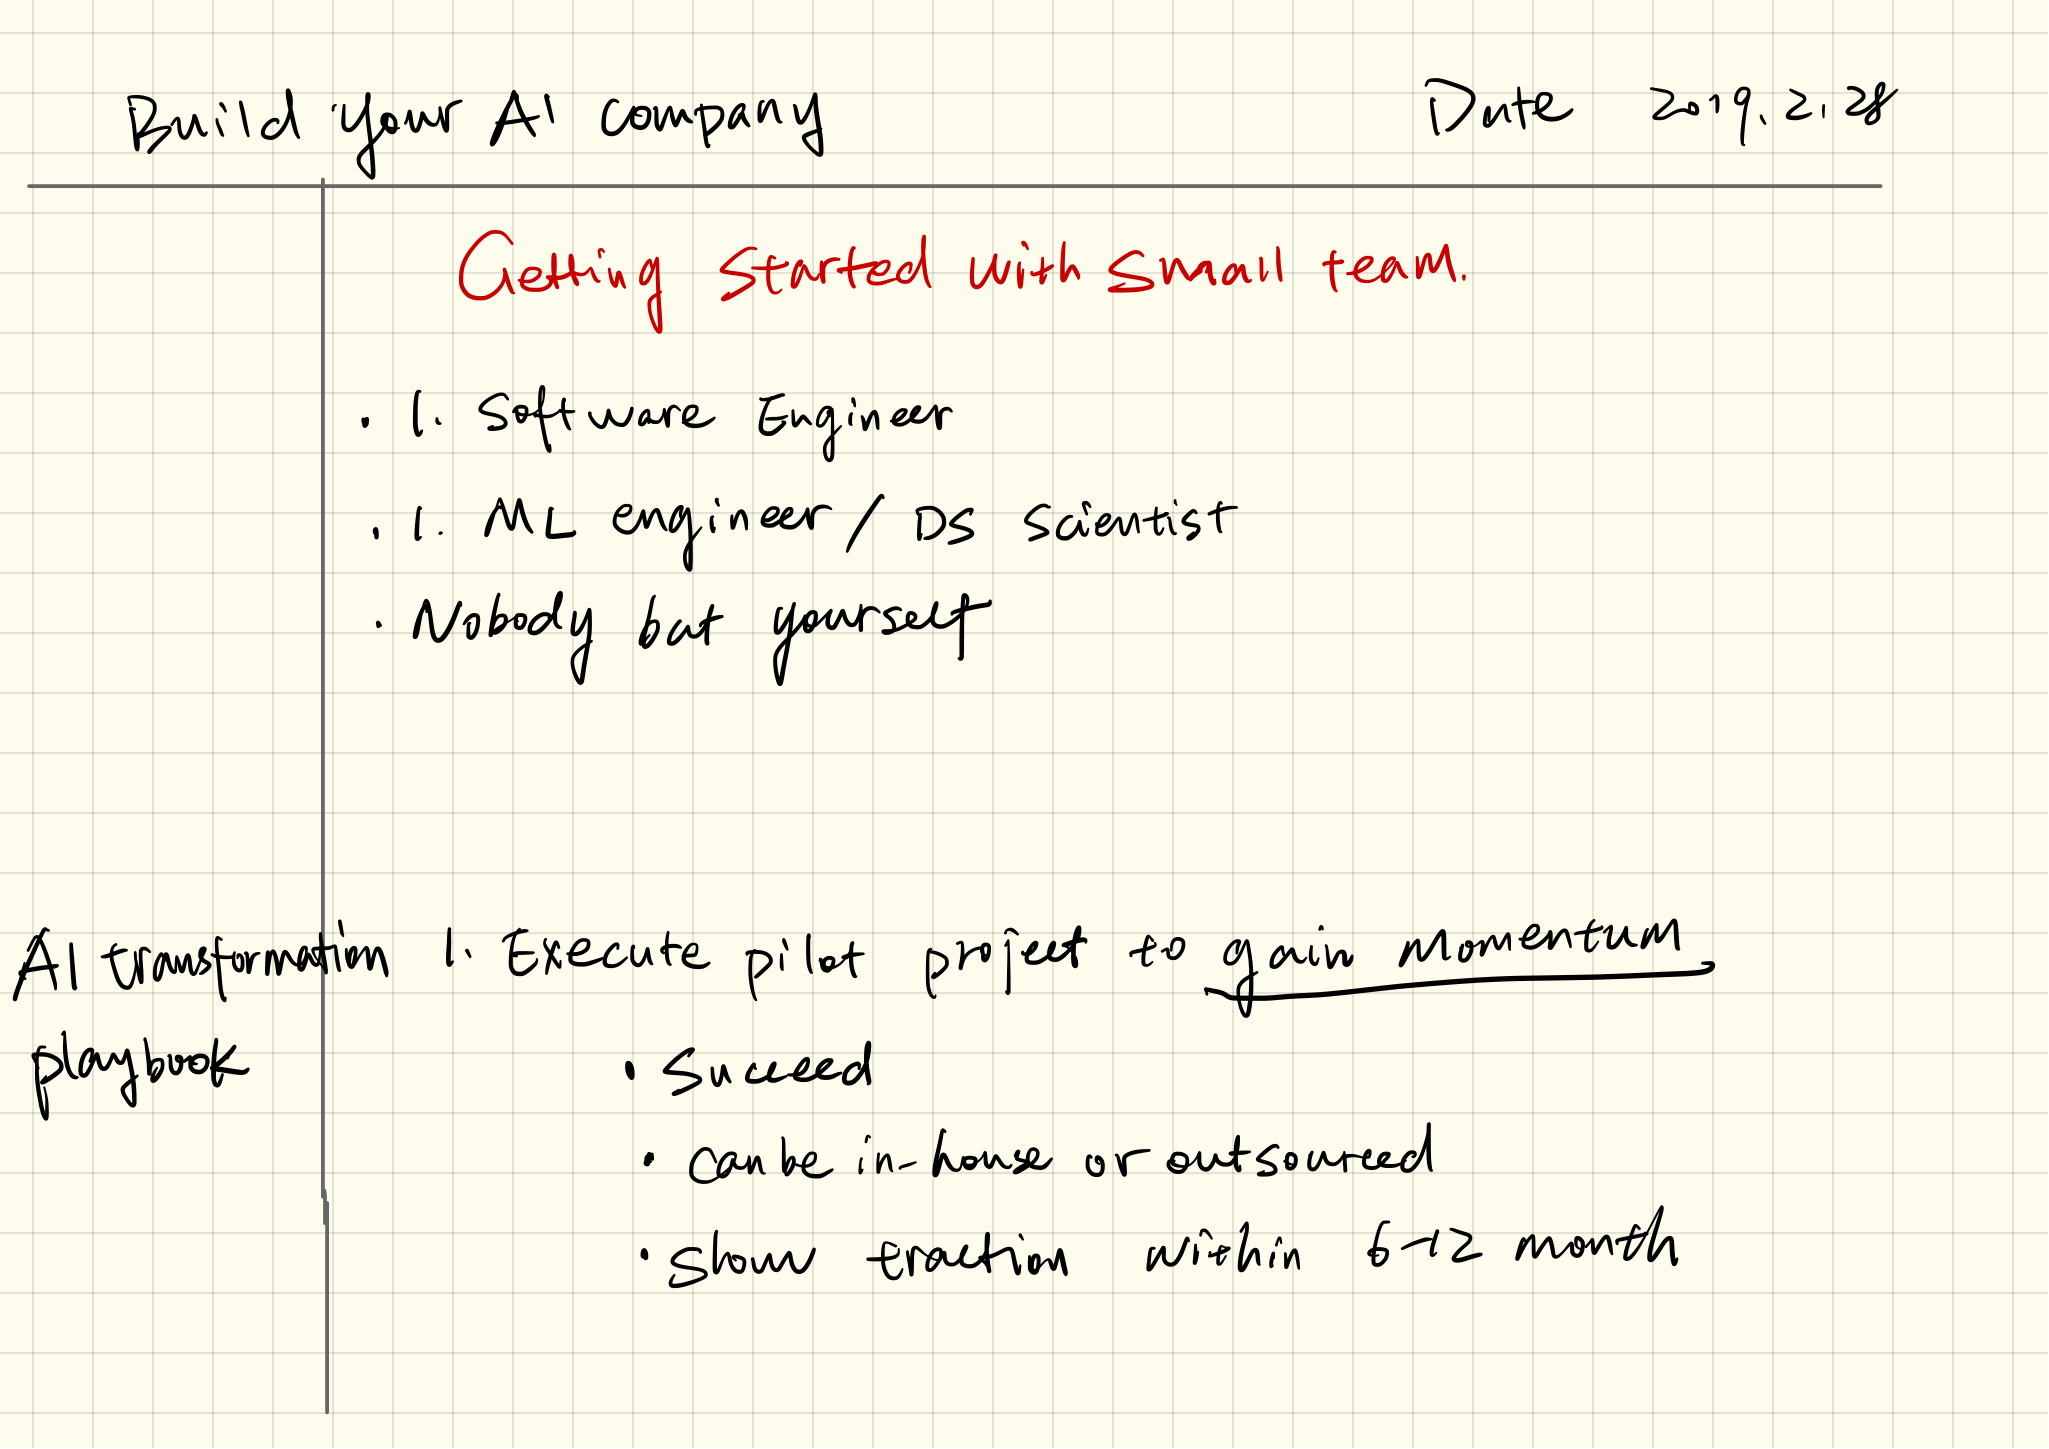 Build your AI company Date 2019.2.28
Getting started with small team.
· 1. Software Engineer
· 1. ML engineer / DS scientist
· Nobody but yourself
AI transformation 1. Execute pilot project to gain momentum
playbook
· Succeed
· can be in-house or outsourced
· show traction within 6-12 month